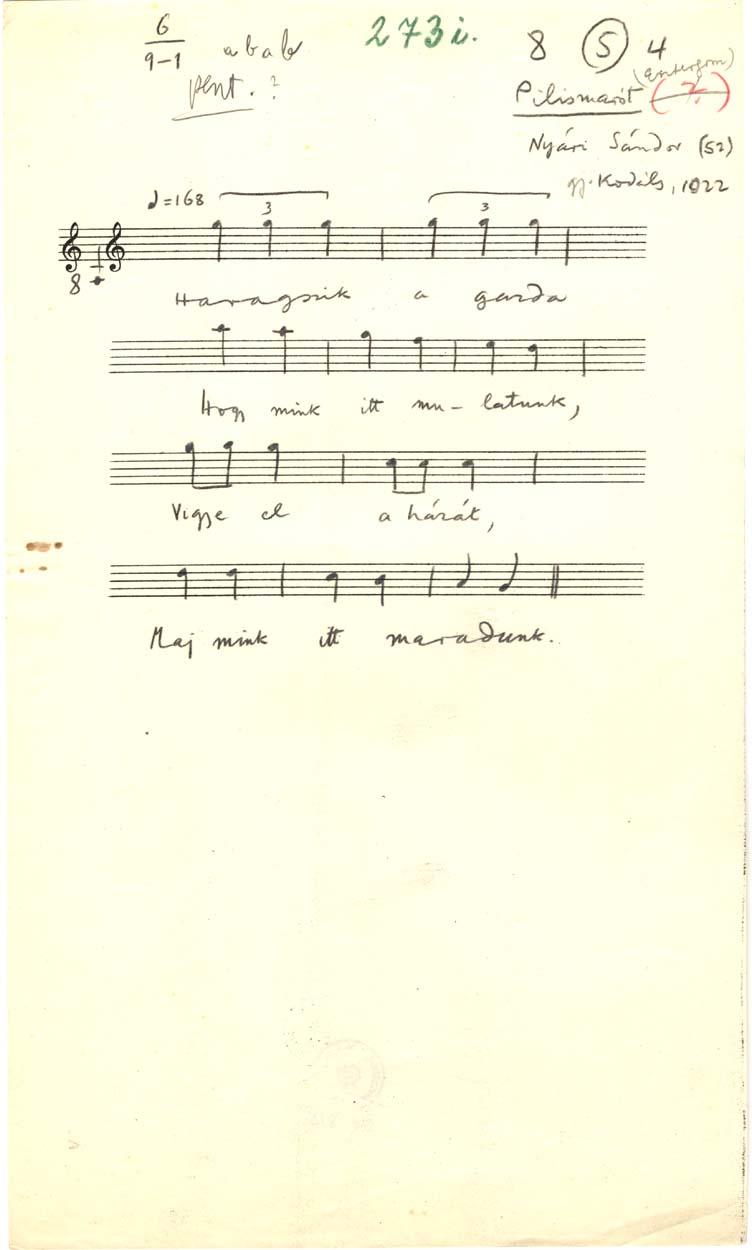 6
9-1
a b a b
pent. ?
273i.
8 5 4
(Esztergom)
Pilismarót (?)
Nyári Sándor (52)
gy. Kodály, 1922
♩=168
3 3
8
Haragszik a gazda
Hogy mink itt mu-latunk,
Vigye el a házát,
Maj mink itt maradunk.